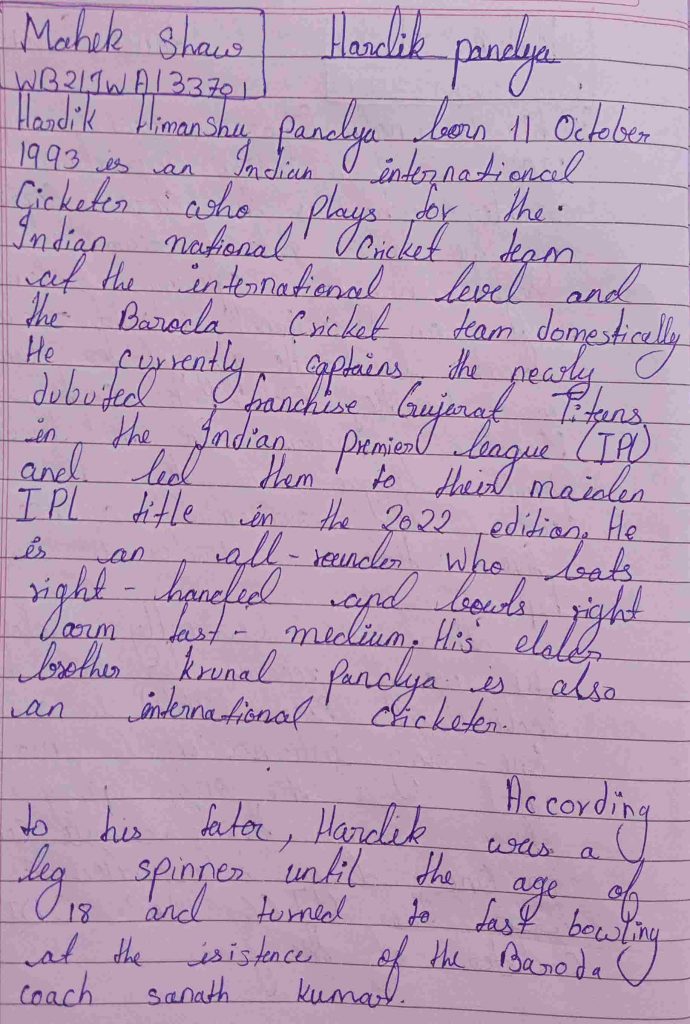 Mahek Shaw
Hardik pandya
WB21JWA133701
Hardik Himanshu pandya born 11 October
1993 is an Indian international
Cicketer who plays for the
Indian national Cricket team
at the international level and
the Baroda Cricket team domestically
He currently captains the newly
dubuted franchise Gujerat Titans
in the Indian premier league (IPL)
and led them to their maiden
IPL title in the 2022 edition. He
is an all-rounder who bats
right-handed and bowls right
arm fast-medium. His elder
brother krunal pandya is also
an international cricketer.
According
to his fater, Hardik was a
leg spinner until the age of
18 and turned to fast bowling
at the isistence of the Baroda
coach sanath kumar.